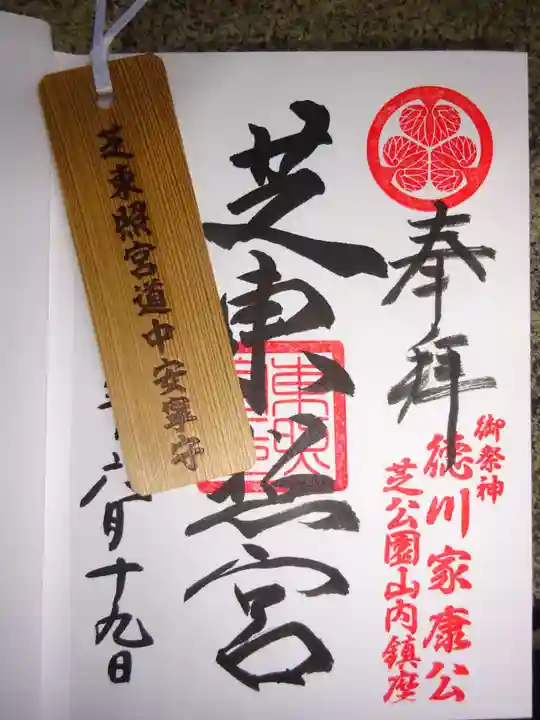 奉拝
御祭神
徳川家康公
芝公園山内鎮座
芝東照宮
六月十九日
芝東照宮道中安寧守